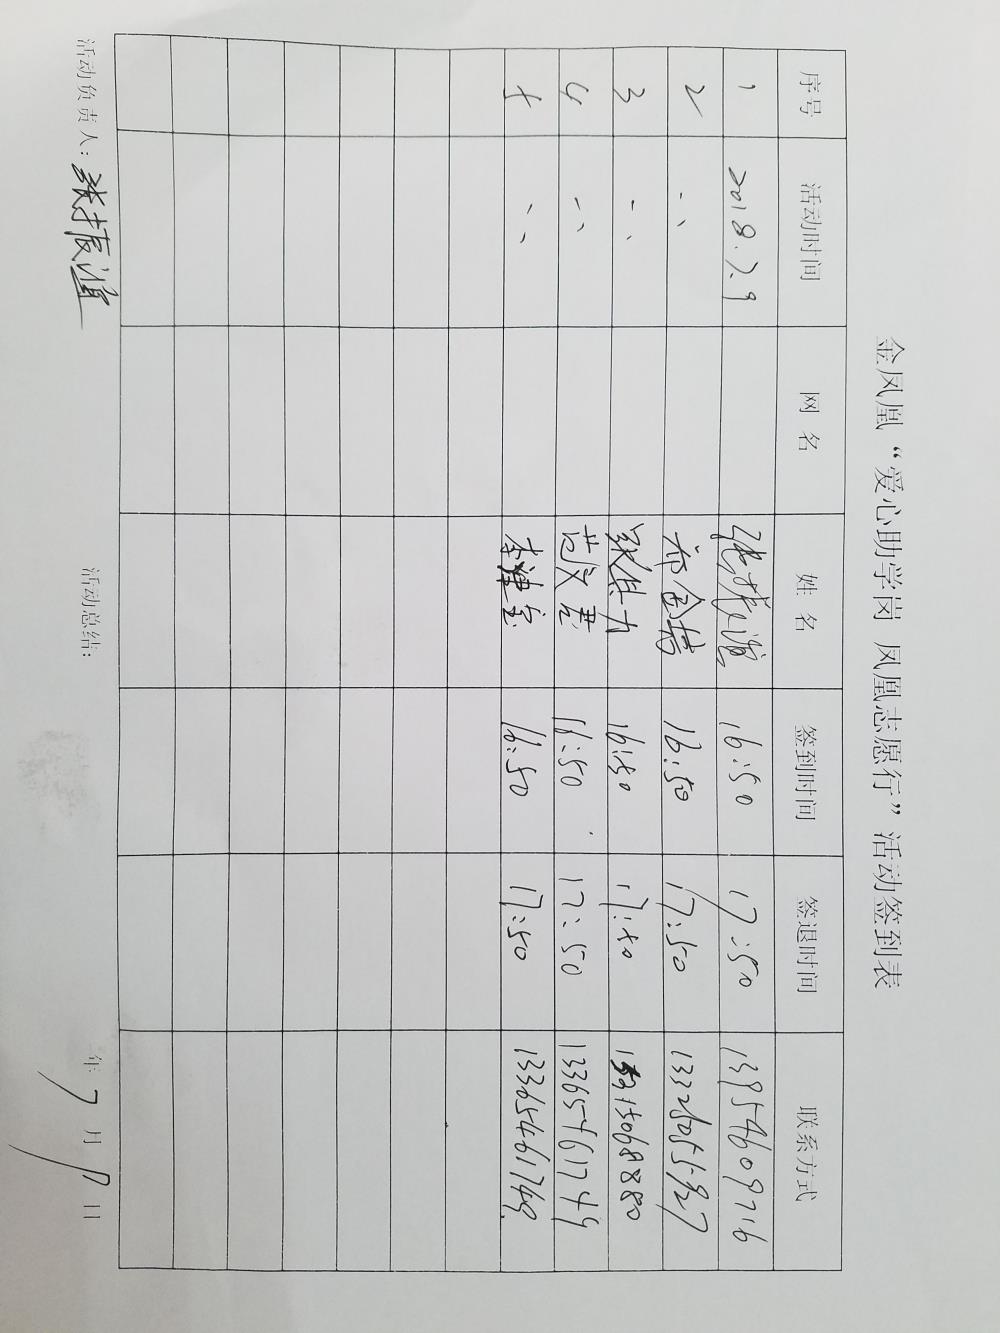 金凤凰“爱心助学岗 凤凰志愿行”活动签到表
序号 活动时间 网 名 姓 名 签到时间 签退时间 联系方式
1 2018.7.9 16:50 17:50 13954609716
2 、、 16:50 17:50
3 、、 16:50 17:50
4 、、 范文君 16:50 17:50 13365461749
5 、、 李建宝 16:50 17:50 13365461749
活动负责人： 活动总结： 年 7 月 9 日